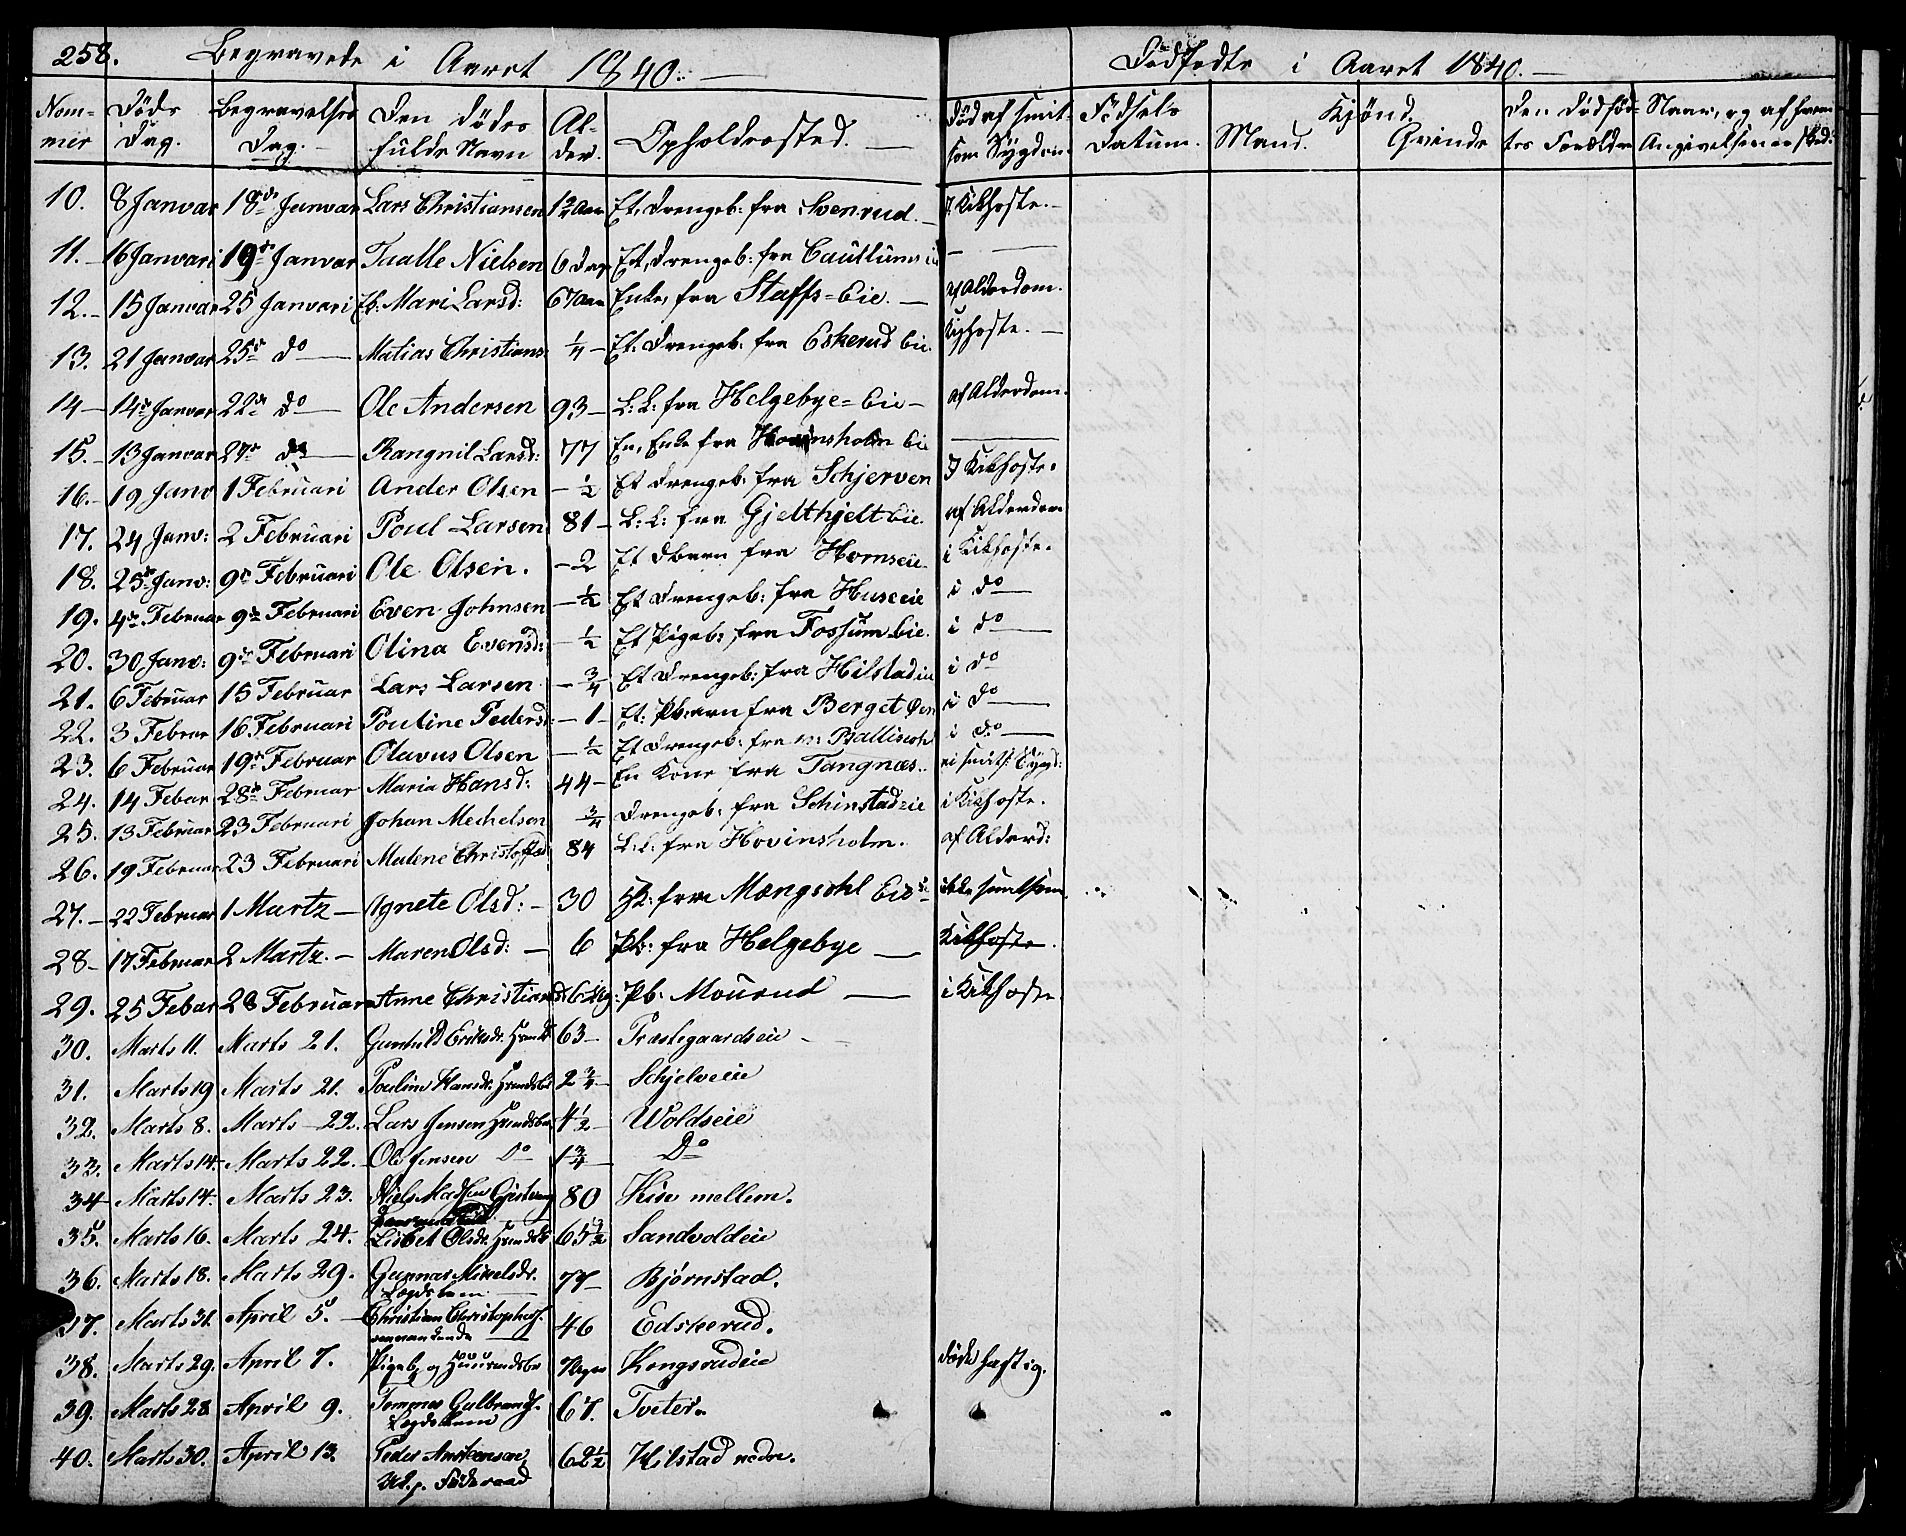 258. Begravede i Aaret 1840. — Dødfødte i Aaret 1840. —
Nom- Døds Begravelses Den dødes Al- Opholdssted. — Død af smit- Fødsels Kjønd. Den dødføds- Naar, og af hvem
mer Dag. Dag. — fulde Navn der. som Sygdom. Datum. Mand. Qvinde tes Forældre Angivelsen er sked.
10. 8 Januar 18de Januar Lars Christiansen Et, Drengeb: fra Svenrud. — I Kikhoste. —
11. — 16 Januari 19de Januar Taalle Nielsen 6 Dage Et, Drengeb: fra — —
12. — 15 Januar 25 Januari Eb. Mari Larsd: 67 Aar Enke, fra Staffs = Eie. — af Alderdom.
13. 21 Januar 25de do — Matias Christians: 1/4 — Et. Drengeb. fra Eskerud Eie. Kighoste. —
14 — 14de Januar 22de do — Ole Andersen 93 — L: L: fra Helgebye = Eie — af Alderdom.
15. — 13 Januar 27de do — Rangnil Larsd: 77 En, Enke fra Hovinsholm Eie —
16. — 19 Janv 1 Februari Ander Olsen — 1/2 Et Drengeb: fra Schjerven I Kikhoste.
17. 24 Janv: 2 Februari Poul Larsen 81 — L: L: fra Gjelthjelt Eie. af Alderdom
18. 25de Janv: 9de Februari Ole Olsen. — 2 Et Dbarn fra Hvornseie i Kikhoste.
19. 4de Februar 9de Februari Even Johnsen — 1/2 Et Drengeb: fra Huseeie i do —
20. 30 Janv: 9de Februari Olina Evensd: — 1/2 Et Pigeb: fra Fossum Eie. i do —
21. 6 Februar 15 Februar Lars Larsen — 3/4 Et Drengeb: fra Hilstadeie i do
22. 3 Februar 16 Februari Pouline Pedersd: — 1 — Et: Pb:arn fra Berget i do —
23. 6 Februar 19de Februar Olavus Olsen — 1/2 Et Drengeb: fra i do —
24. 14 Febuar 28de Februar Maria Hansd: 44 — En Kone fra Tangnæs. ei smits: Sygd:
25. 13 Februar 23 Februari Johan Mechelsen 3/4 Drengeb: fra Schinstadeie i Kikhoste.
26. 19 Februar 23 Februari Malene Christoffersd 84 L: L: fra Hovinsholm. af Alderd:
27. — 22 Februar 1 Martz — Agnete Olsd: — 30 fra Mængsohl Eie ikke smitsom
28 — 17 Februar 2 Martz. — Maren Olsd: — 6 Pb: fra Helgebye — Kikhoste.
29. 25 Febuar 28 Februar Anne Christiansd: 6 Ug: Pb: Mourud — i Kikhoste
30. Marts 11. Marts 21. Gunhild Eriksdr. 63 — Præstegaardseie —
31. Marts 19 Marts 21. Pouline Hansdr. Huusmdsbn 2 3/4 — Schjelveeie
32. Marts 8. Marts 22. Lars Jensen Huusmdsbn 4 1/2 — Woldseie
33. Marts 14. Marts 22. Ole Jensen Do 1 3/4 — Do
34 Marts 14. Marts 23. Niels Madsen 80 Kise mellem.
35. Marts 16. Marts 24. Lisbet Olsdr. 65 1/2 Sandvoldeie
36. Marts 18. Marts 29. Gunnar Mikelsdr. Lægdslem — 77 — Bjørnstad.
37. Marts 31. April 5. — Christian Christophers. vanvankende 46 Edskerud.
38. Marts 29. April 7. Pigeb. og Huusmdsbn 7 Uger Kongsrudeie døde hastig.
39. Marts 28 April 9. Tommas Gulbrands. Lægdslem 67. Tveter.
40. Marts 30. April 12. Peder Amundsen Føderaad 62 1/2 Hilstad nedre.